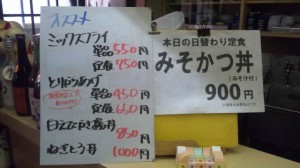 オススメ
ミックスフライ
単品 550円
定食 750円
とりからあげ
単品 450円
定食 650円
850円
ねぎとろ丼
1000円
本日の日替わり定食
みそかつ丼
(みそ汁付)
900円